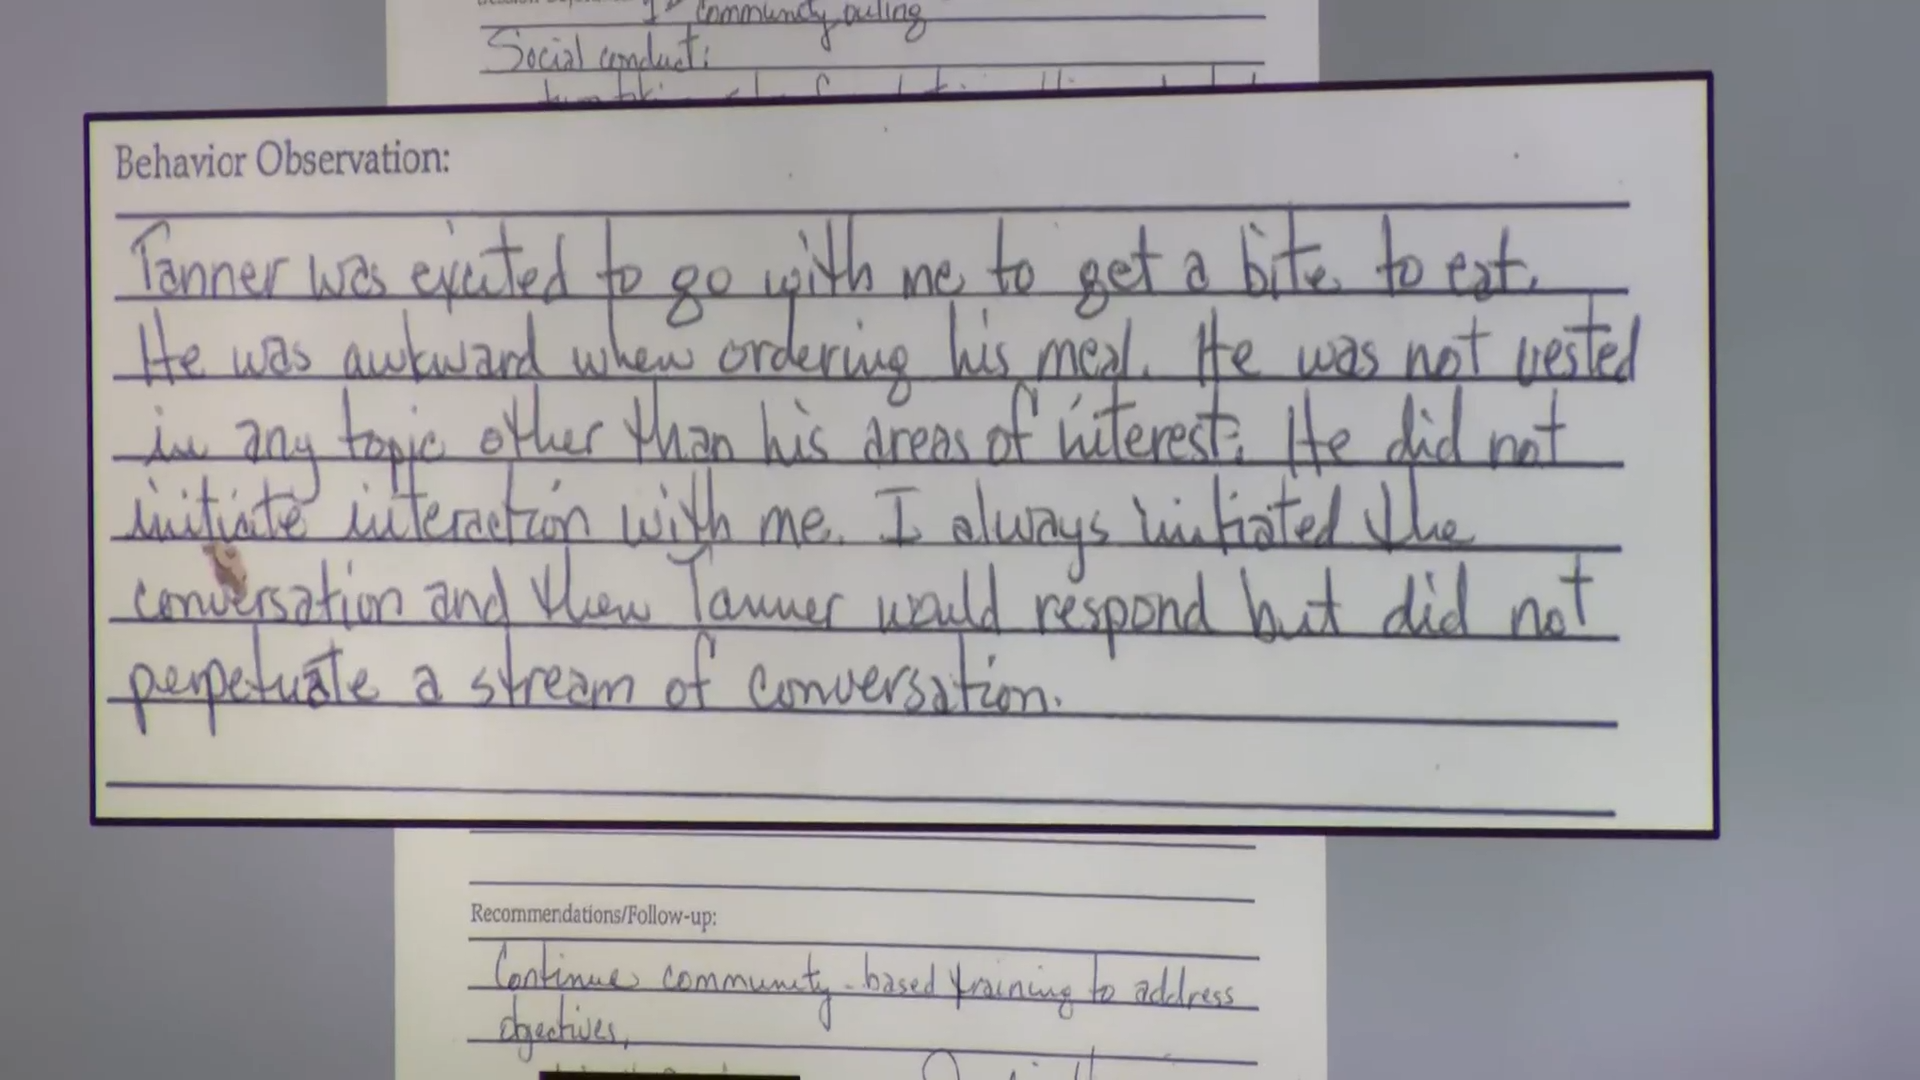 community outing
Social conduct:
Behavior Observation:
Tanner was excited to go with me to get a bite to eat.
He was awkward when ordering his meal. He was not vested
in any topic other than his areas of interest. He did not
initiate interaction with me. I always initiated the
conversation and then Tanner would respond but did not
perpetuate a stream of conversation.
Recommendations/Follow-up:
Continue community-based training to address
objectives.